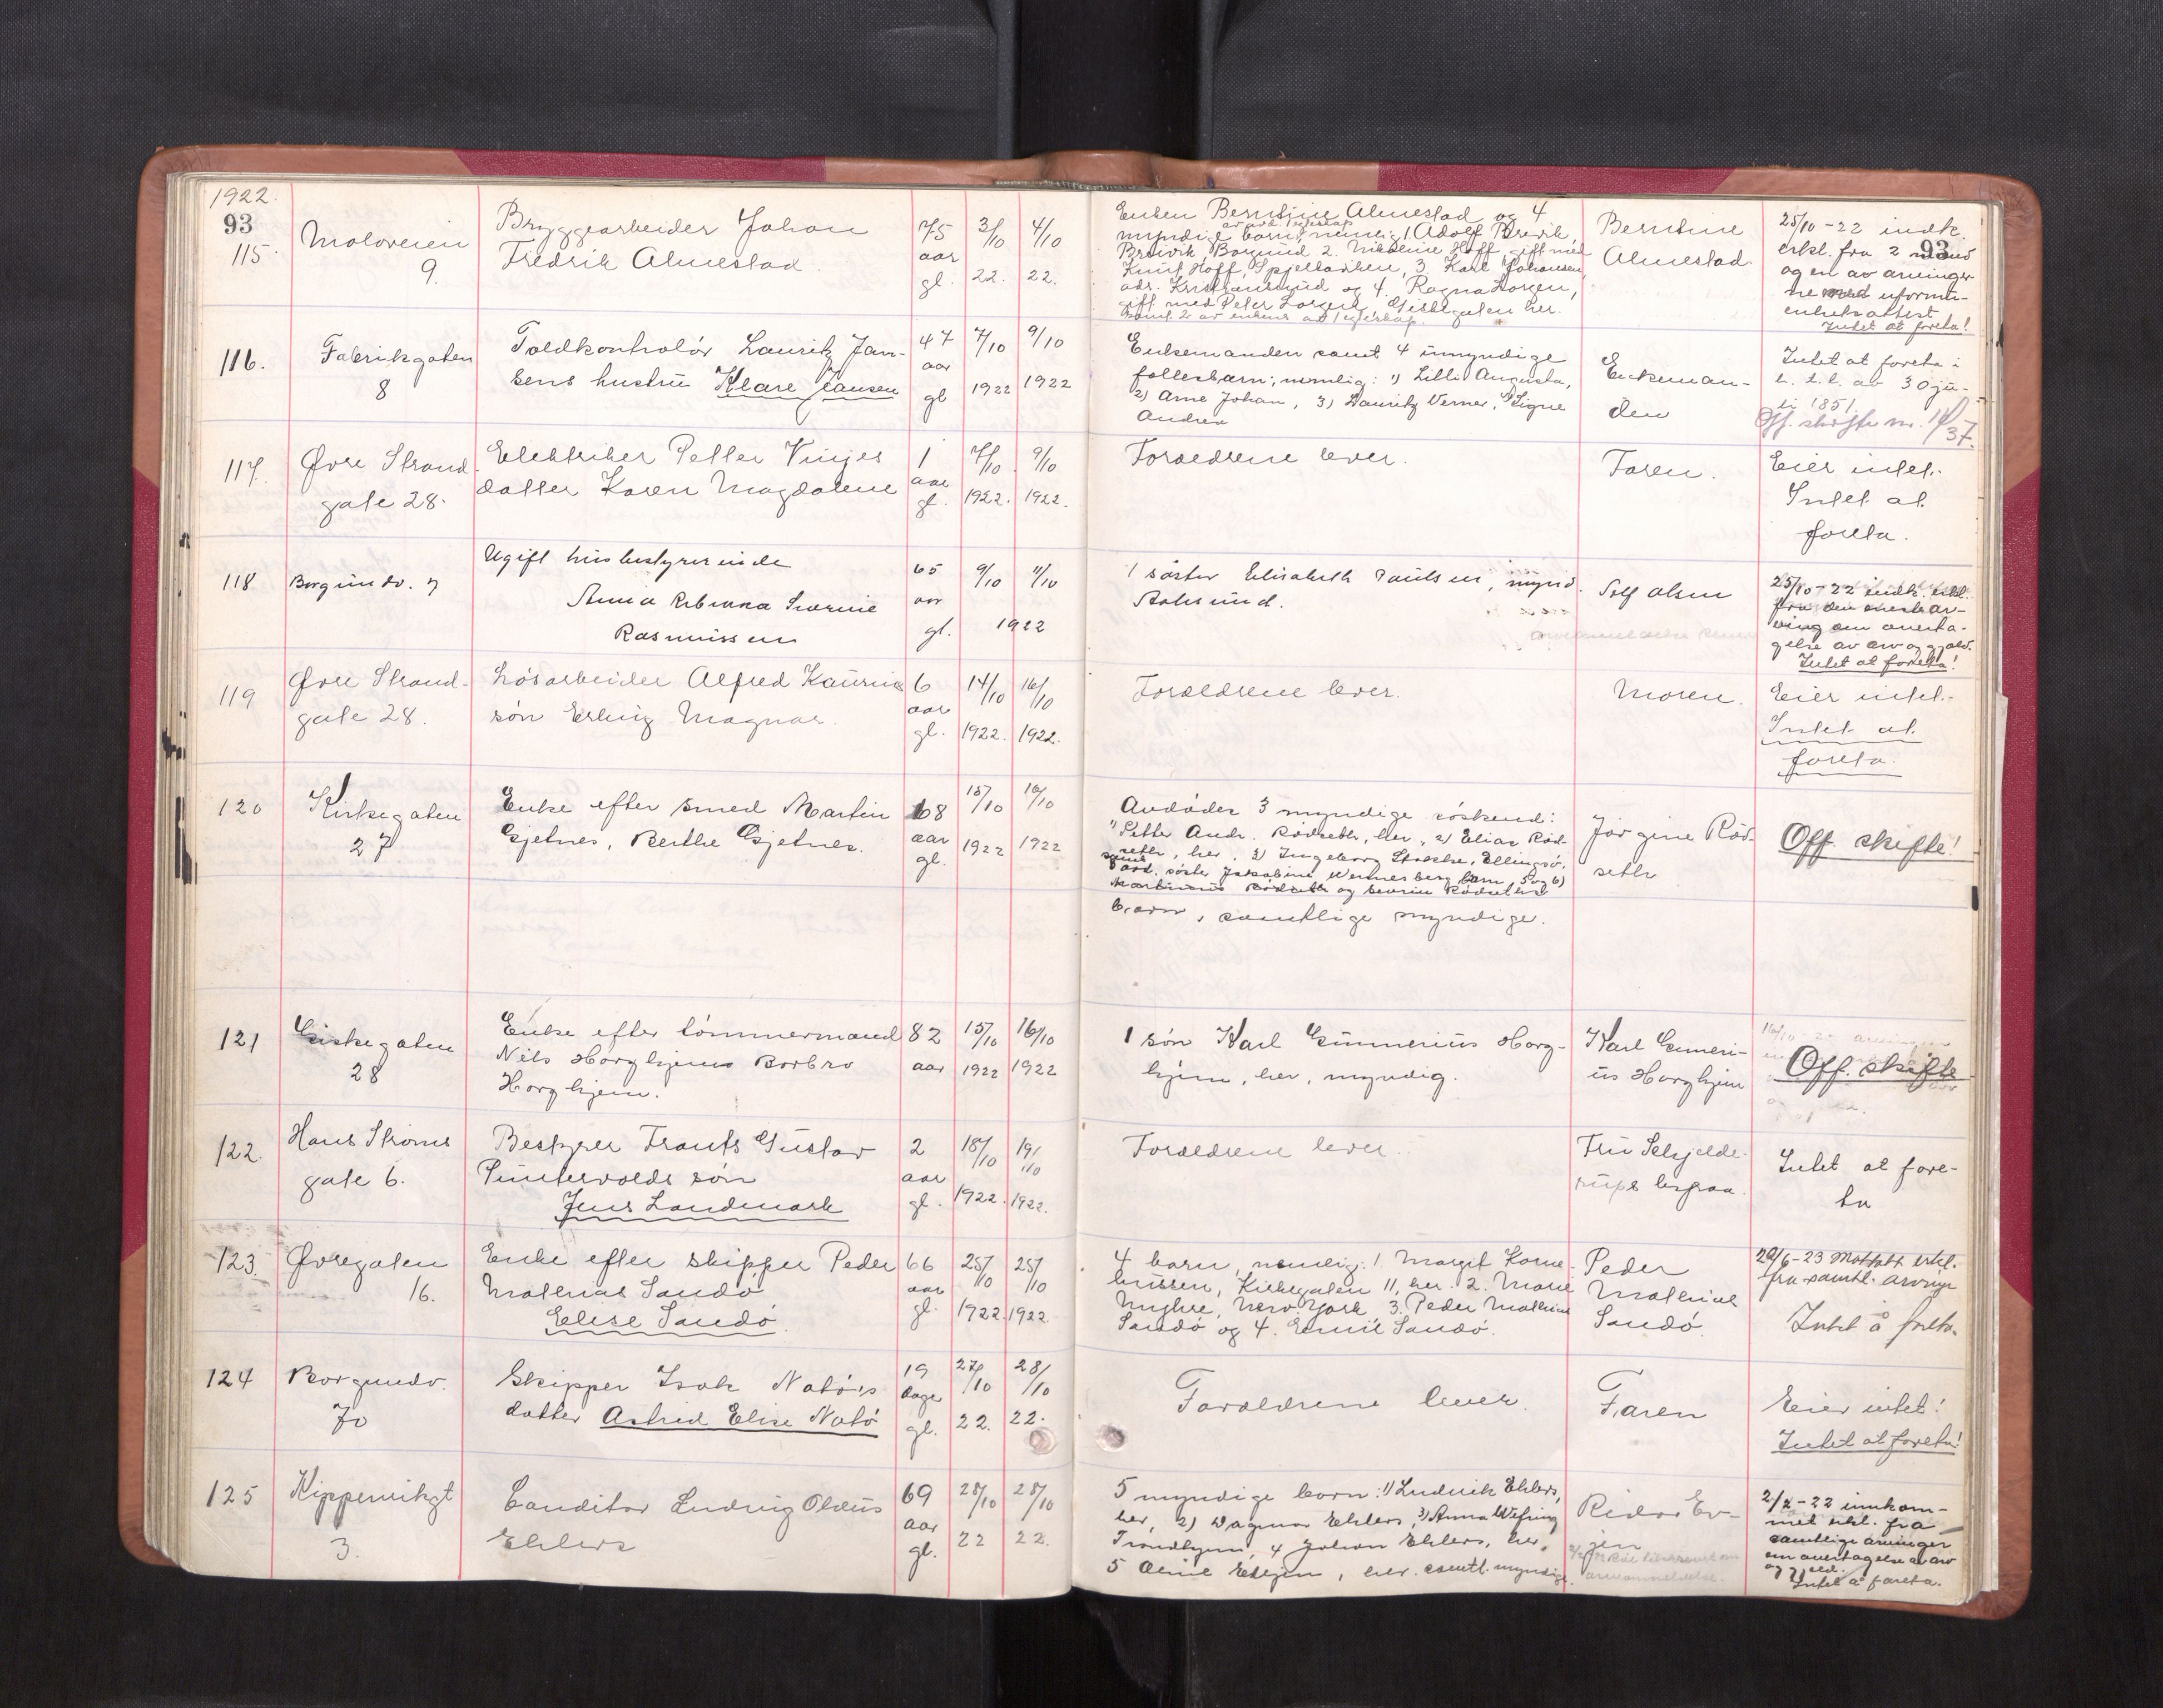 1922.
93
93
115.
Moloveien
9.
Bryggearbeider Johan
Fredrik Almestad
75
aar
gl.
3/10
22.
4/10
22.
Enken Berntine Almestad og 4
myndige barn, nemlig 1. Adolf Brevik,
Breivik, Borgund 2. Nikoline Hoff, gift med
Knut Hoff, Spjelkaviken, 3. Karl Johansen,
adr. Kristiansund og 4. Ragna Larsen,
gift med Peter Larsen, Giskegaten her.
Berntine
Almestad
25/10-22 indk.
erkl. fra 2 mænd
og en av arvinger-
ne med uformu-
enhetsattest
Intet at foreta!
116.
Fabrikgaten
8
Toldkontrolør Lauritz Jan-
sens hustru Klare Jansen
47
aar
gl
7/10
1922
9/10
1922
Enkemanden samt 4 umyndige
fællesbarn, nemlig: 1) Lilli Augusta,
2) Arne Johan, 3) Lauritz Verner, 4) Signe
Andrea
Enkeman-
den
Intet at foreta i
h. t. l. av 30 ju-
li 1851
Off. skifte nr. 11/37.
117.
Øvre Strand-
gate 28.
Elektriker Petter Vinjes
datter Karen Magdalene
1
aar
gl.
7/10
1922.
9/10
1922.
Forældrene lever.
Faren.
Eier intet.
Intet at
foreta.
118
Borgundv. 7
Ugift husbestyrerinde
Anna Rebekka Severine
Rasmussen
65
aar
gl.
9/10
11/10
1922
1 søster Elisabeth Paulsen, mynd.
Aalesund.
Solf Olsen
25/10-22 indk. erkl.
fra den eneste ar-
ving om overta-
gelse av arv og gjæld.
Intet at foreta!
119
Øvre Strand-
gate 28.
Løsarbeider Alfred Kaurins
søn Erling Magnar.
6
aar
gl.
14/10
1922.
16/10
1922.
Forældrene lever.
Moren.
Eier intet.
Intet at
foreta.
120
Kirkegaten
27
Enke efter smed Martin
Gjetnes, Berthe Gjetnes.
68
aar
gl.
15/10
1922
16/10
1922
Avdødes 3 myndige søskend:
1) Petter Andr. Rødseth, her, 2) Elias Rød-
seth, her, 3) Ingeborg Stokke, Ellingsø,
samt
avd. søster Jakobine Wennersberg barn, 5 og 6)
Martinus Rødseth og Severin Rødseths
barn, samtlige myndige.
Jørgine Rød-
seth
Off. skifte!
121
Giskegaten
28
Enke efter tømmermand
Nils Horghjems Barbro
Horghjem.
82
aar
15/10
1922
16/10
1922
1 søn Karl Gunnerius Horg-
hjem, her, myndig.
Karl Gunneri-
us Horghjem
Off. skifte
122.
Hans Strøms
gate 6.
Bestyrer Frants Gustav
Puntervolds søn
Jens Landmark
2
aar
gl.
18/10
1922.
19/10
1922.
Forældrene lever.
Fru Schjelde-
rups
Intet at fore-
ta
123.
Øvregaten
16.
Enke efter skipper Peder
Mathias Sandø
Elise Sandø.
66
aar
gl.
25/10
1922.
25/10
1922.
4 barn, nemlig: 1. Margit Korne-
liussen, Kirkegaten 11, her. 2. Marie
Myhre, New York, 3. Peder Mathias
Sandø og 4. Emil Sandø.
Peder
Mathias
Sandø.
29/6-23 Mottatt erkl.
fra samtl. arvinger
Intet å foreta.
124
Borgundv.
70
Skipper Isak Natø's
datter Astrid Elise Natø
19
dage
gl.
27/10
22.
28/10
22.
Forældrene lever.
Faren
Eier intet!
Intet at foreta!
125
Kippervikgt
3.
Conditor Ludvig Olaus
Ehlers
69
aar
gl.
28/10
22
28/10
22.
5 myndige barn: 1) Ludvik Ehlers,
her, 2) Dagmar Ehlers, 3) Anna Wefring
Trondhjem, 4 Johan Ehlers, her,
5 Aline Evjen, her. samtl. myndige.
Reidar Ev-
jen
2/2-22 innkom-
met erkl. fra
samtlige arvinger
om overtagelse av arv
og gjeld.
Intet å foreta.